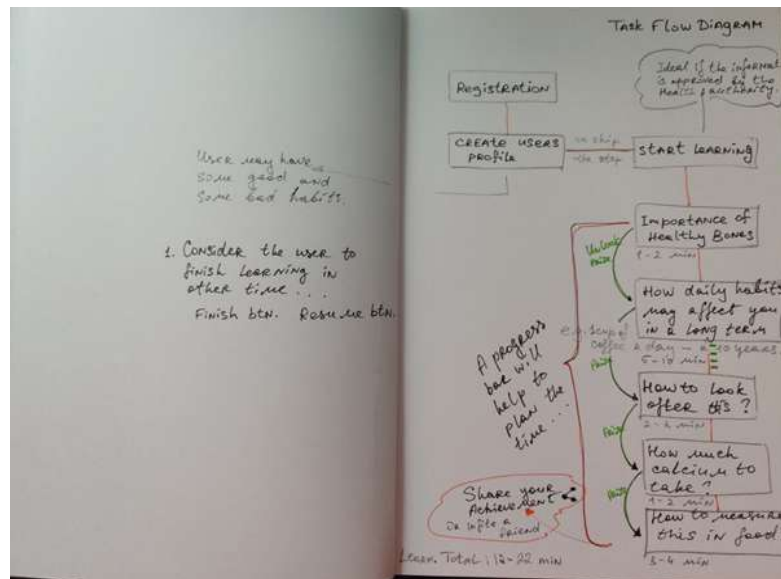 User may have
some good and
some bad habits.
1. Consider the user to
finish learning in
other time...
Finish btn. Resume btn.
Task Flow Diagram
Ideal if the informat
is approved by the
Health Authority.
Registration
CREATE USERS
PROFILE
the step
START LEARNING
Importance of
Healthy Bones
1-2 min
How daily habits
may affect you
in a long term
coffee a day
10 years
5-10 min
How to look
after this?
2-4 min
How much
calcium to
take?
1-2 min
How to measure
this in food
3-4 min
A progress
bar will
help to
plan the
time...
Share your
Achievement
Or invite a
friend
Learn. Total: 12-22 min